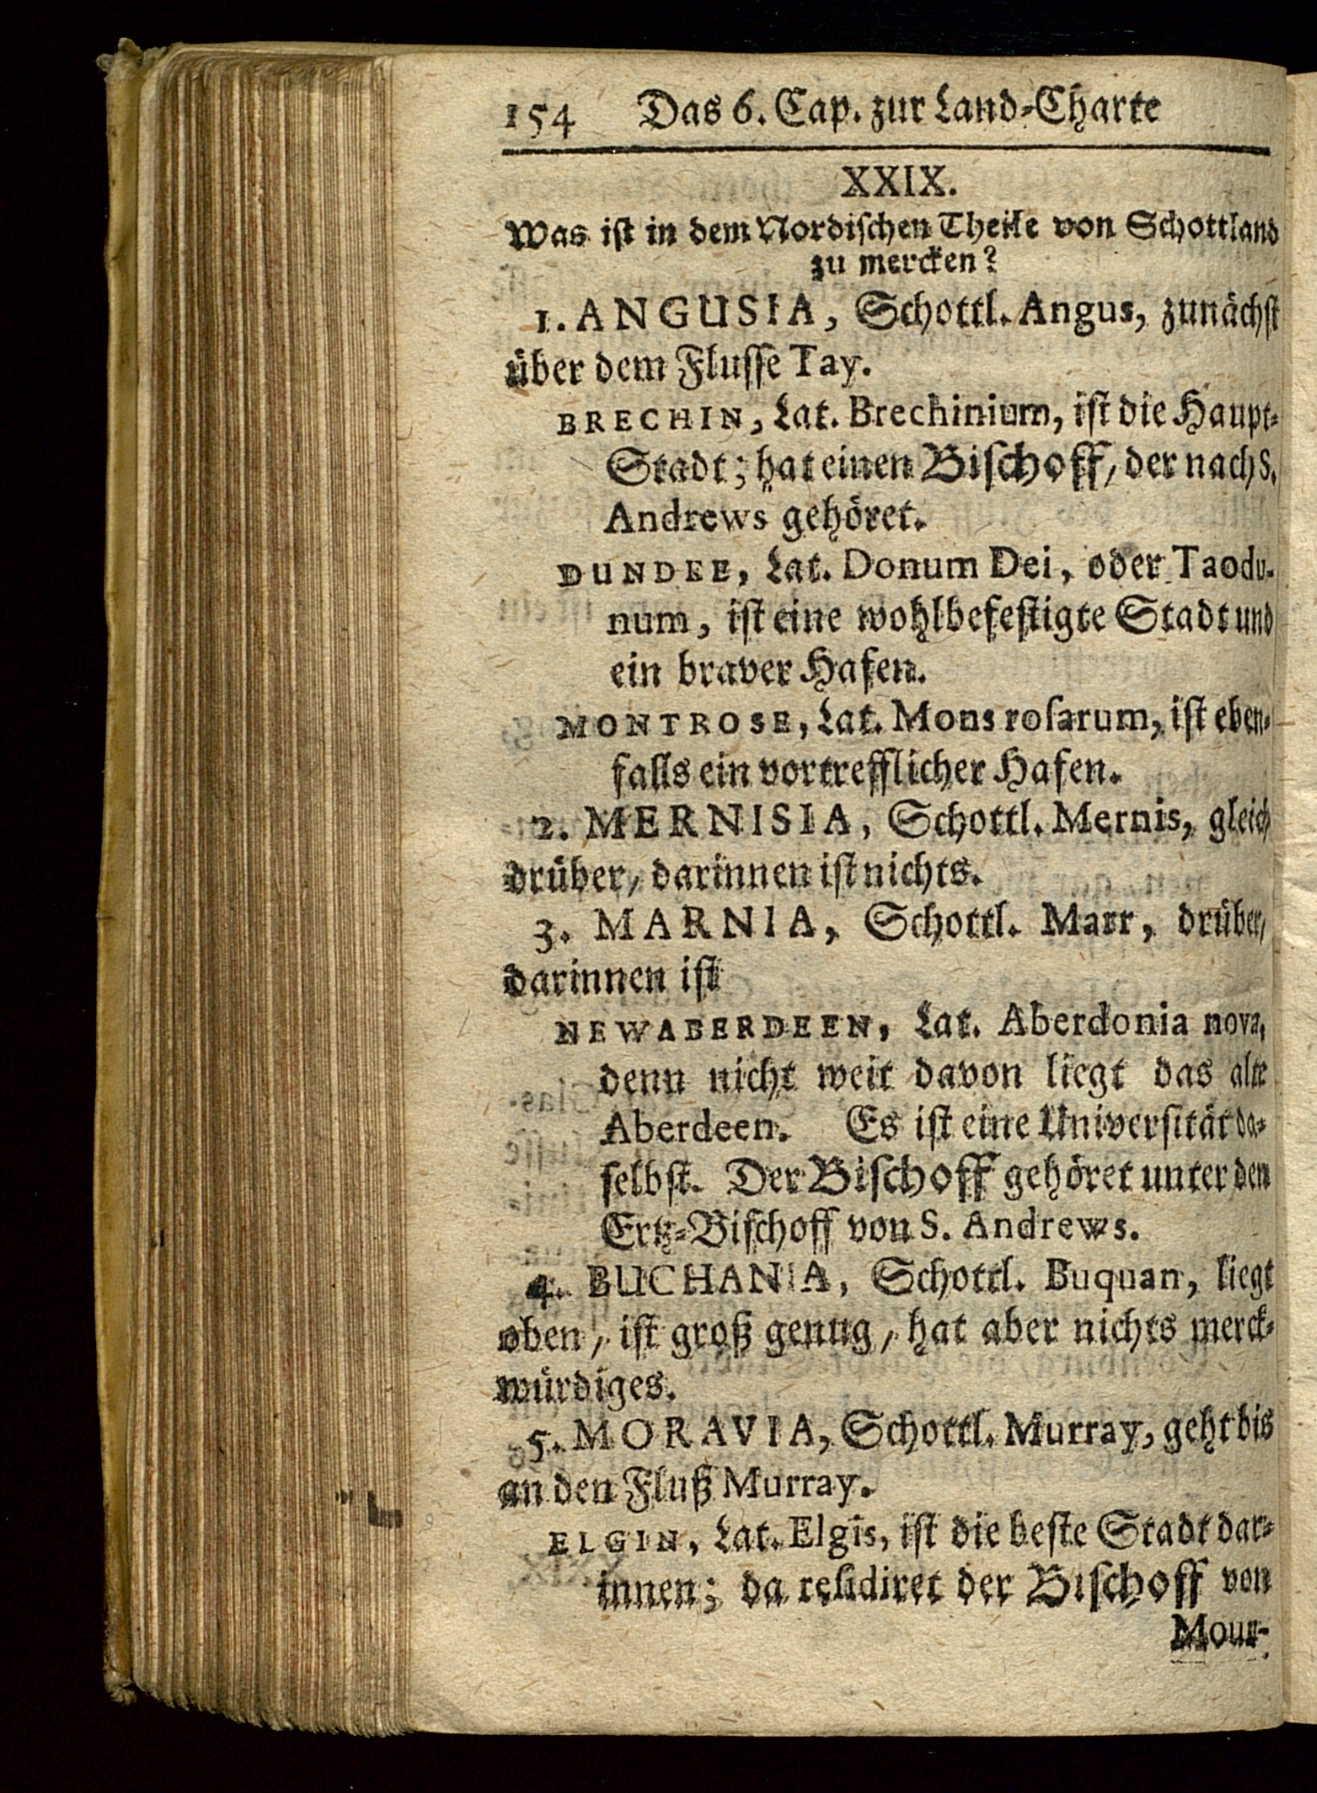 154 Das 6. Cap. zur Land-Charte
XXIX.
Was ist in dem Nordischen Theile von Schottland
zu mercken?
1. ANGUSIA, Schottl. Angus, zunächst
über dem Flusse Tay.
BRECHIN, Lat. Brechinium, ist die Haupt-
Stadt; hat einen Bischoff/ der nach S.
Andrews gehöret.
DUNDEE, Lat. Donum Dei, oder Taodu-
num, ist eine wohlbefestigte Stadt und
ein braver Hafen.
MONTROSE, Lat. Mons rosarum, ist eben-
falls ein vortrefflicher Hafen.
2. MERNISIA, Schottl. Mernis, gleich
drüber/ darinnen ist nichts.
3. MARNIA, Schottl. Marr, drüber/
darinnen ist
NEWABERDEEN, Lat. Aberdonia nova,
denn nicht weit davon liegt das alte
Aberdeen. Es ist eine Universität da-
selbst. Der Bischoff gehöret unter den
Ertz-Bischoff von S. Andrews.
4. BUCHANIA, Schottl. Buquan, liegt
oben/ ist groß genug/ hat aber nichts merck-
würdiges.
5. MORAVIA, Schottl. Murray, geht bis
an den Fluß Murray.
ELGIN, Lat. Elgis, ist die beste Stadt dar-
innen; da residiret der Bischoff von
Mour-